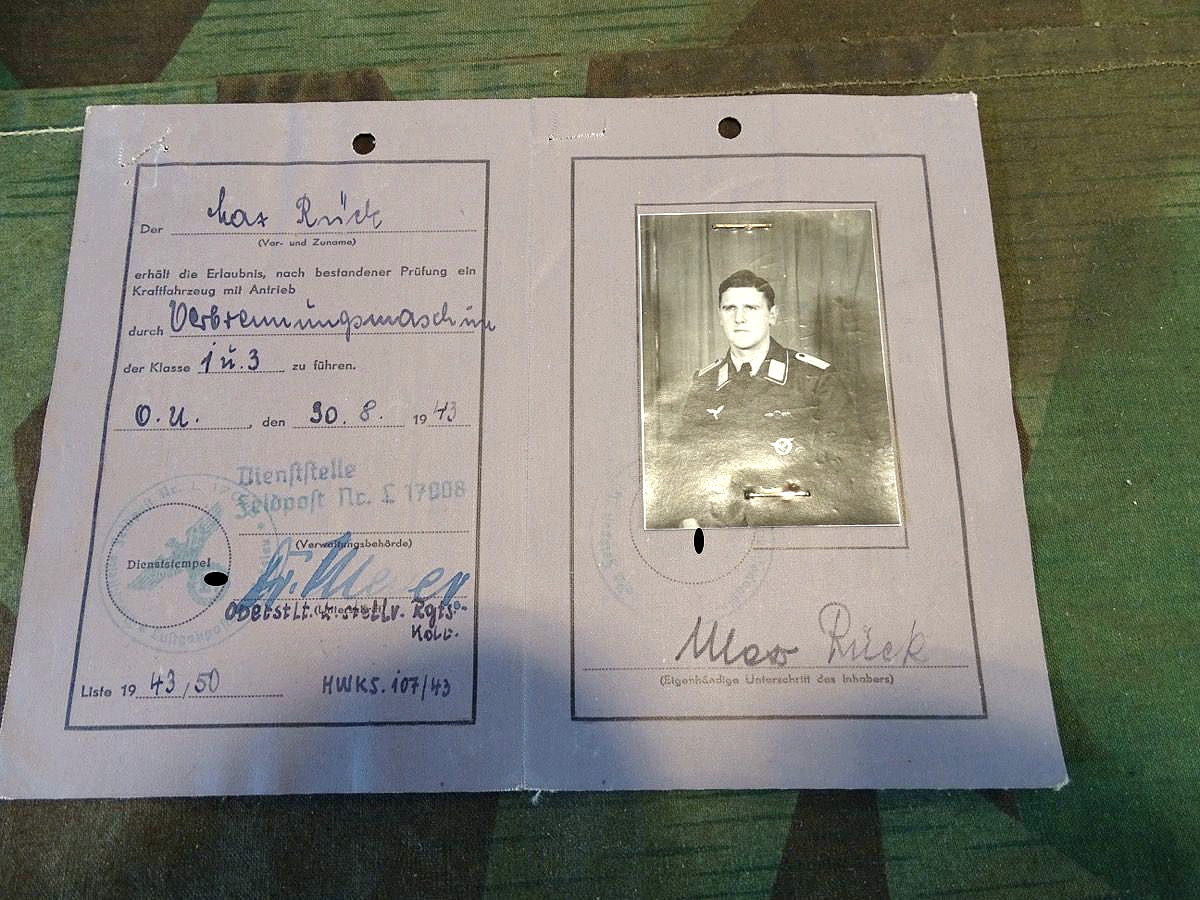 Der Max Rück
(Vor- und Zuname)
erhält die Erlaubnis, nach bestandener Prüfung ein
Kraftfahrzeug mit Antrieb
durch Verbrennungsmaschine
der Klasse 1 u. 3 zu führen.
O.U. , den 30. 8. 1943
Dienststelle
Feldpost Nr. L 17008
(Verwaltungsbehörde)
Dienststempel
(Unterschrift)
Oberstlt. u. stellv. Rgts.-
Kdr.
Liste 19 43/50 HWKS. 107/43
Max Rück
(Eigenhändige Unterschrift des Inhabers)